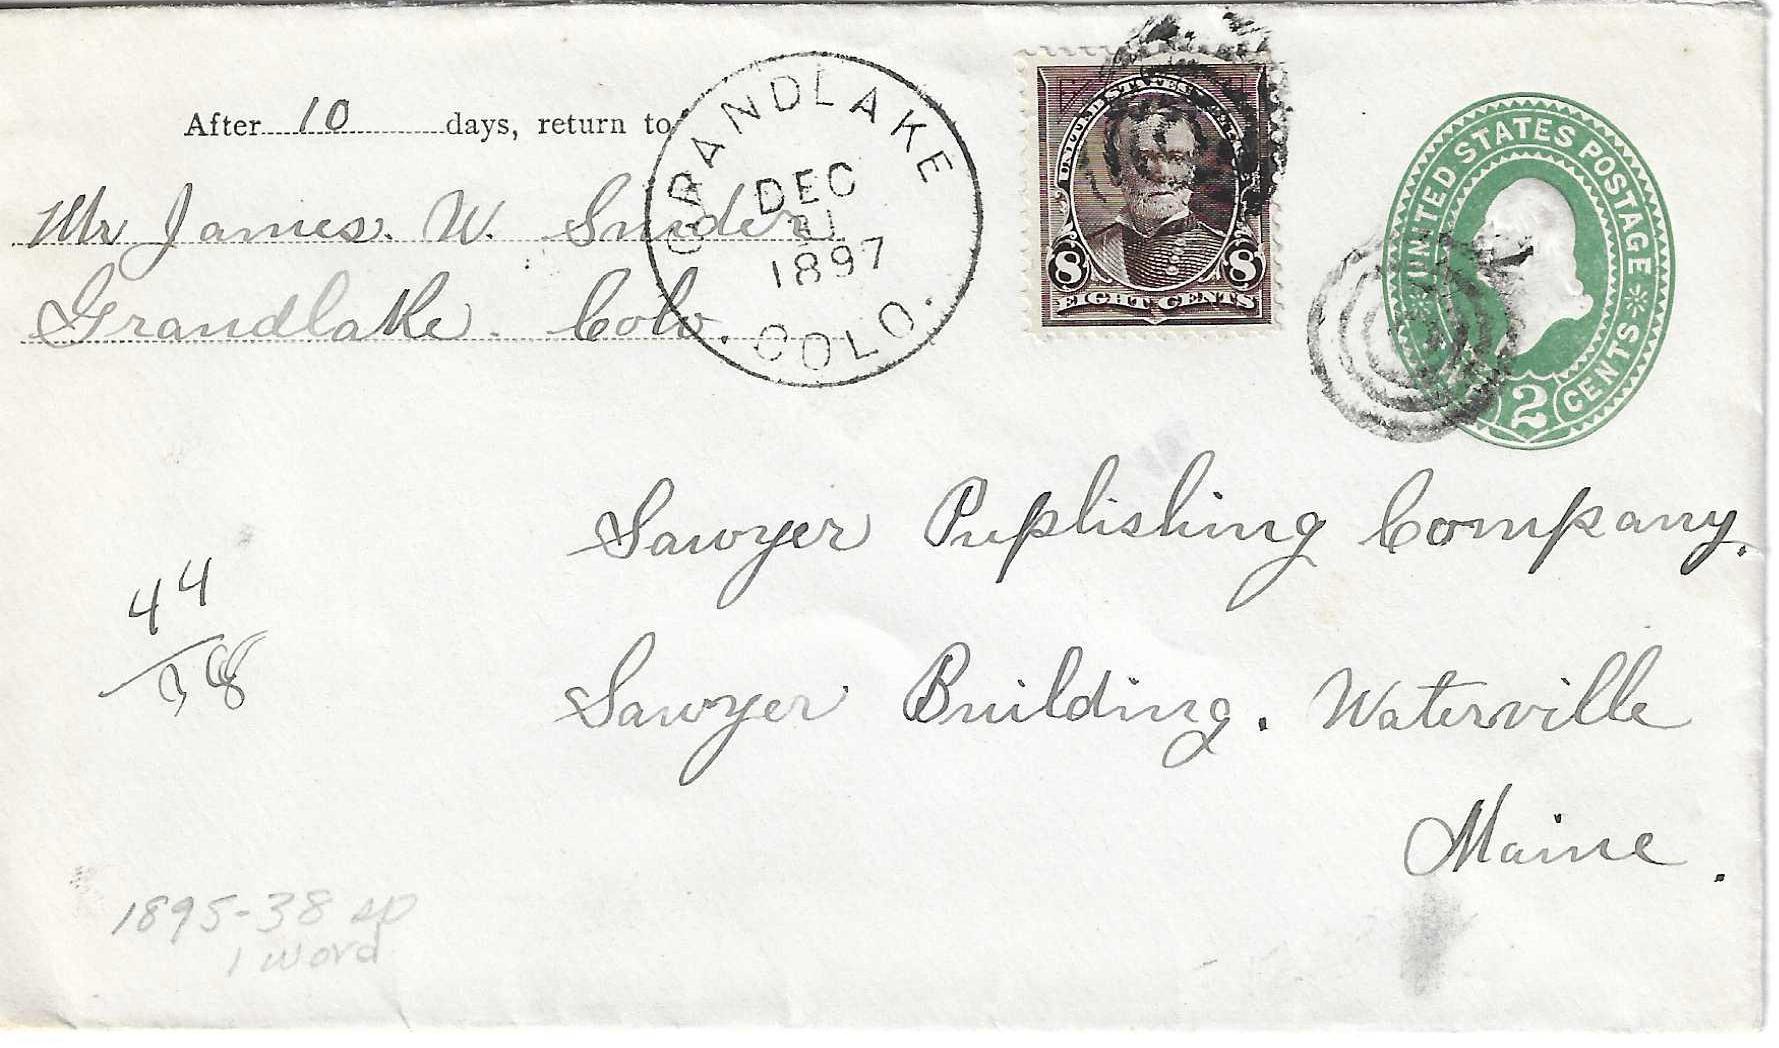 After 10 days, return to
Mr James. W. Snider
Grandlake. Colo.
GRANDLAKE
DEC
31
1897
COLO.
UNITED STATES
8 8
EIGHT CENTS
UNITED STATES POSTAGE
2 CENTS
Sawyer Puplishing Company.
Sawyer Building. Waterville
Maine.
44
1895-38 sp
1 word